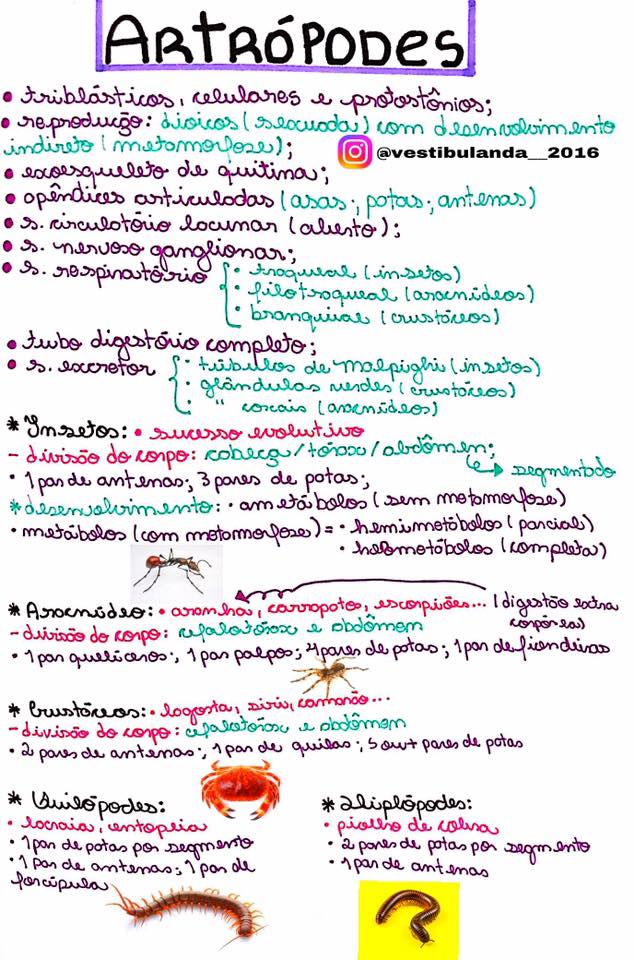 ARTRÓPODES
• triblásticos, celulares e protostônios;
• reprodução: dioicos (sexuada) com desenvolvimento
indireto (metamorfose);
@vestibulanda__2016
• exoesqueleto de quitina;
• apêndices articuladas (asas; patas; antenas)
• s. circulatório lacunar (aberto);
• s. nervoso ganglionar;
• s. respiratório
• traqueal (insetos)
• filotraqueal (aracnídeos)
• branquial (crustáceos)
• tubo digestório completo;
• s. excretor
• túbulos de malpighi (insetos)
• glândulas verdes (crustáceos)
• " coxais (aracnídeos)
* Insetos: • sucesso evolutivo
- divisão do corpo: cabeça/tórax/abdômen;
segmentado
• 1 par de antenas; 3 pares de patas;
* desenvolvimento: • ametábolos (sem metamorfose)
• metábolos (com metamorfose) = • hemimetábolos (parcial)
• holometábolos (completa)
* Aracnídeo: • aranha, carrapato, escorpiões... (digestão extra
corpórea)
- divisão do corpo: cefalotórax e abdômen
• 1 par quelíceros; 1 par palpos; 4 pares de patas; 1 par de fiandeiras
* Crustáceos: • lagosta, siris, camarão...
- divisão do corpo: cefalotórax e abdômen
• 2 pares de antenas; 1 par de quilas; 5 ou + pares de patas
* Quilópodes:
• lacraia, centopeia
• 1 par de patas por segmento
• 1 par de antenas; 1 par de
forcípula
* diplópodes:
• piolho de cobra
• 2 pares de patas por segmento
• 1 par de antenas